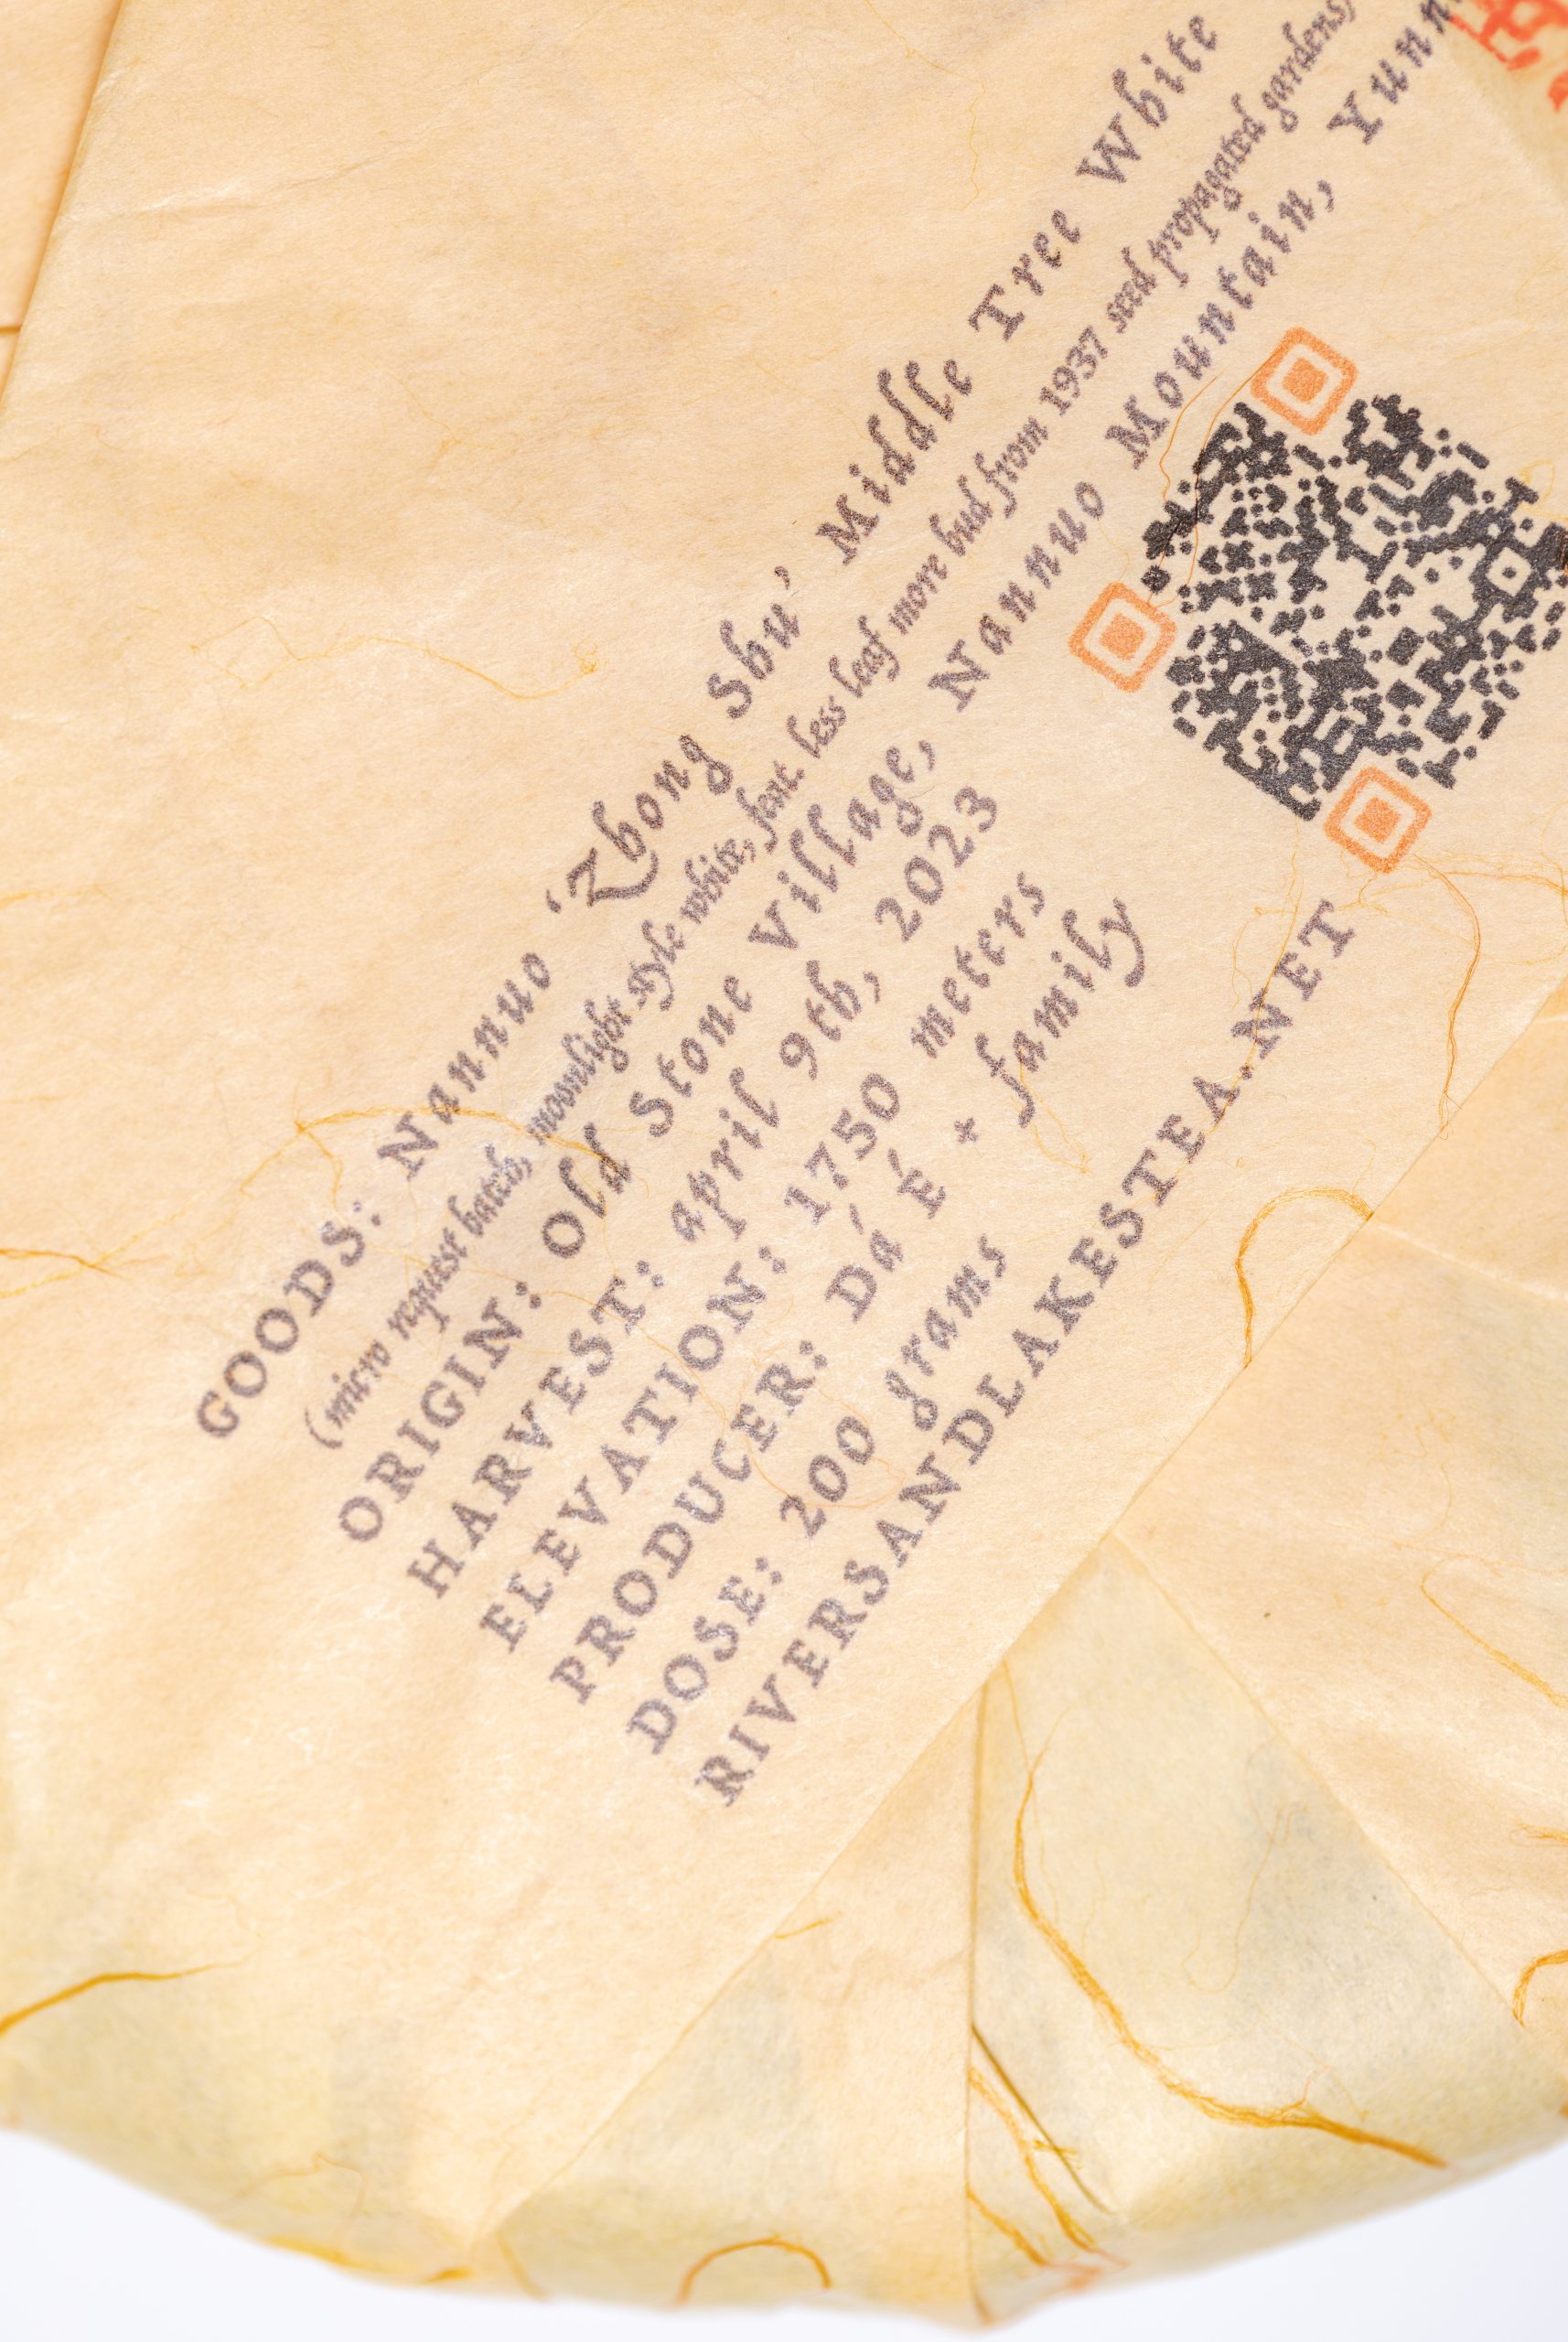 GOODS: Nannuo 'Zhong Shu' Middle Tree White
(micro request batch, moonlight style white, fent. less leaf more bud from 1937 seed propagated gardens)
ORIGIN: Old Stone Village, Nannuo Mountain, Yunn
HARVEST: april 9th, 2023
ELEVATION: 1750 meters
PRODUCER: Dá È + family
DOSE: 200 grams
RIVERSANDLAKESTEA.NET